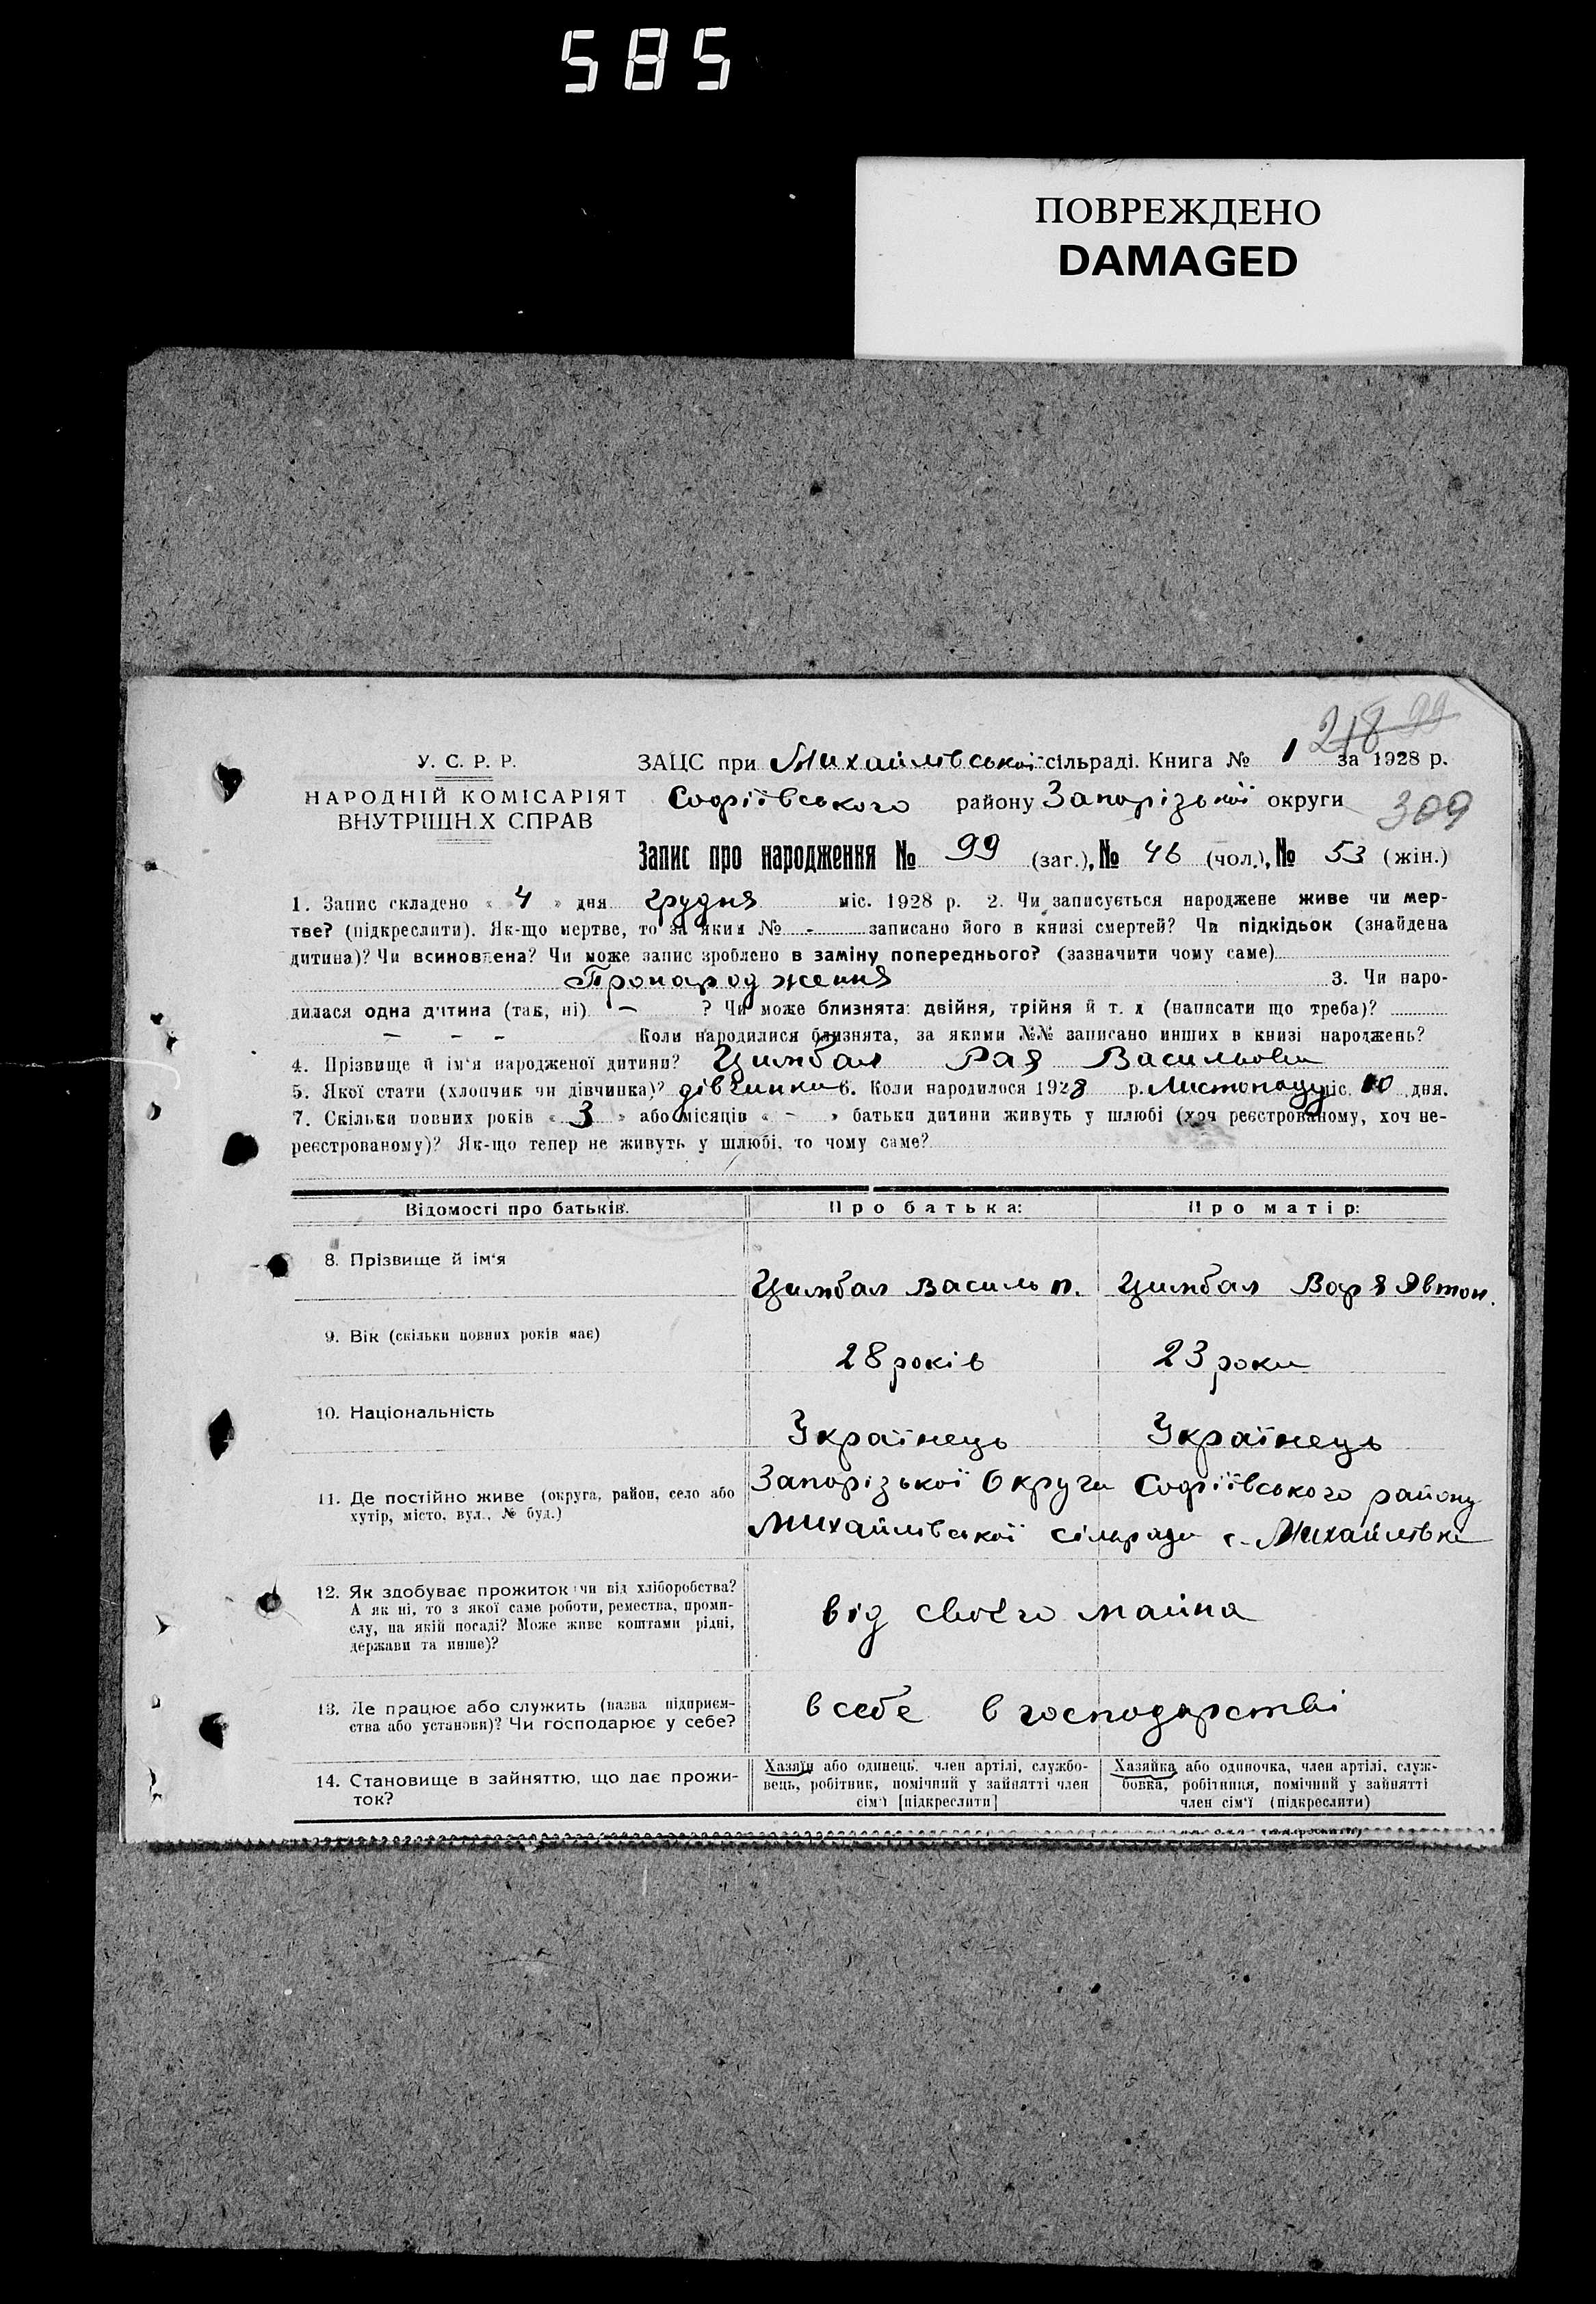 585
ПОВРЕЖДЕНО
DAMAGED
218 99
У. С. Р. Р.
НАРОДНІЙ КОМІСАРІЯТ
ВНУТРІШН.Х СПРАВ
ЗАЦС при Михайлівської сільраді. Книга № 1 за 1928 р.
Софіївського району Запорізької округи
309
Запис про народження № 99 (заг.), № 46 (чол.), № 53 (жін.)
1. Запис складено « 4 » дня грудня міс. 1928 р. 2. Чи записується народжене живе чи мер-
тве? (підкреслити). Як-що мертве, то за яким № - записано його в книзі смертей? Чи підкідьок (знайдена
дитина)? Чи всиновлена? Чи може запис зроблено в заміну попереднього? (зазначити чому саме)
Про народження 3. Чи наро-
дилася одна дитина (так, ні) - ? Чи може близнята: двійня, трійня й т. д (написати що треба)?
- - - Коли народилися близнята, за якими №№ записано инших в книзі народжень?
4. Прізвище й ім'я народженої дитини? Цимбал Рая Васильовна
5. Якої стати (хлопчик чи дівчинка)? дівчинка 6. Коли народилося 1928 р. Листопаду міс. 10 дня.
7. Скільки повних років « 3 » або місяців « - » батьки дитини живуть у шлюбі (хоч реєстрованому, хоч не-
реєстрованому)? Як-що тепер не живуть у шлюбі, то чому саме?
Відомості про батьків. Про батька: Про матір:
8. Прізвище й ім'я
Цимбал Василь п. Цимбал Варя Явтон.
9. Вік (скільки повних років має)
28 років 23 роки
10. Національність
Українець Українець
Запорізької Округи Софіївського району
11. Де постійно живе (округа, район, село або
хутір, місто, вул., № буд.)
Михайлівської сільради с. Михайлівка
12. Як здобуває прожиток: чи від хліборобства?
А як ні, то з якої саме роботи, ремества, проми-
слу, на якій посаді? Може живе коштами рідні,
держави та инше)?
від своєго майна
13. Де працює або служить (назва підприєм-
ства або установи)? Чи господарює у себе?
в себе в господарстві
14. Становище в зайняттю, що дає прожи-
ток?
Хазяїн або одинець, член артілі, службо-
вець, робітник, помічний у зайнятті член
сім'ї [підкреслити]
Хазяйка або одиночка, член артілі, служ-
бовка, робітниця, помічний у зайнятті
член сім'ї (підкреслити)